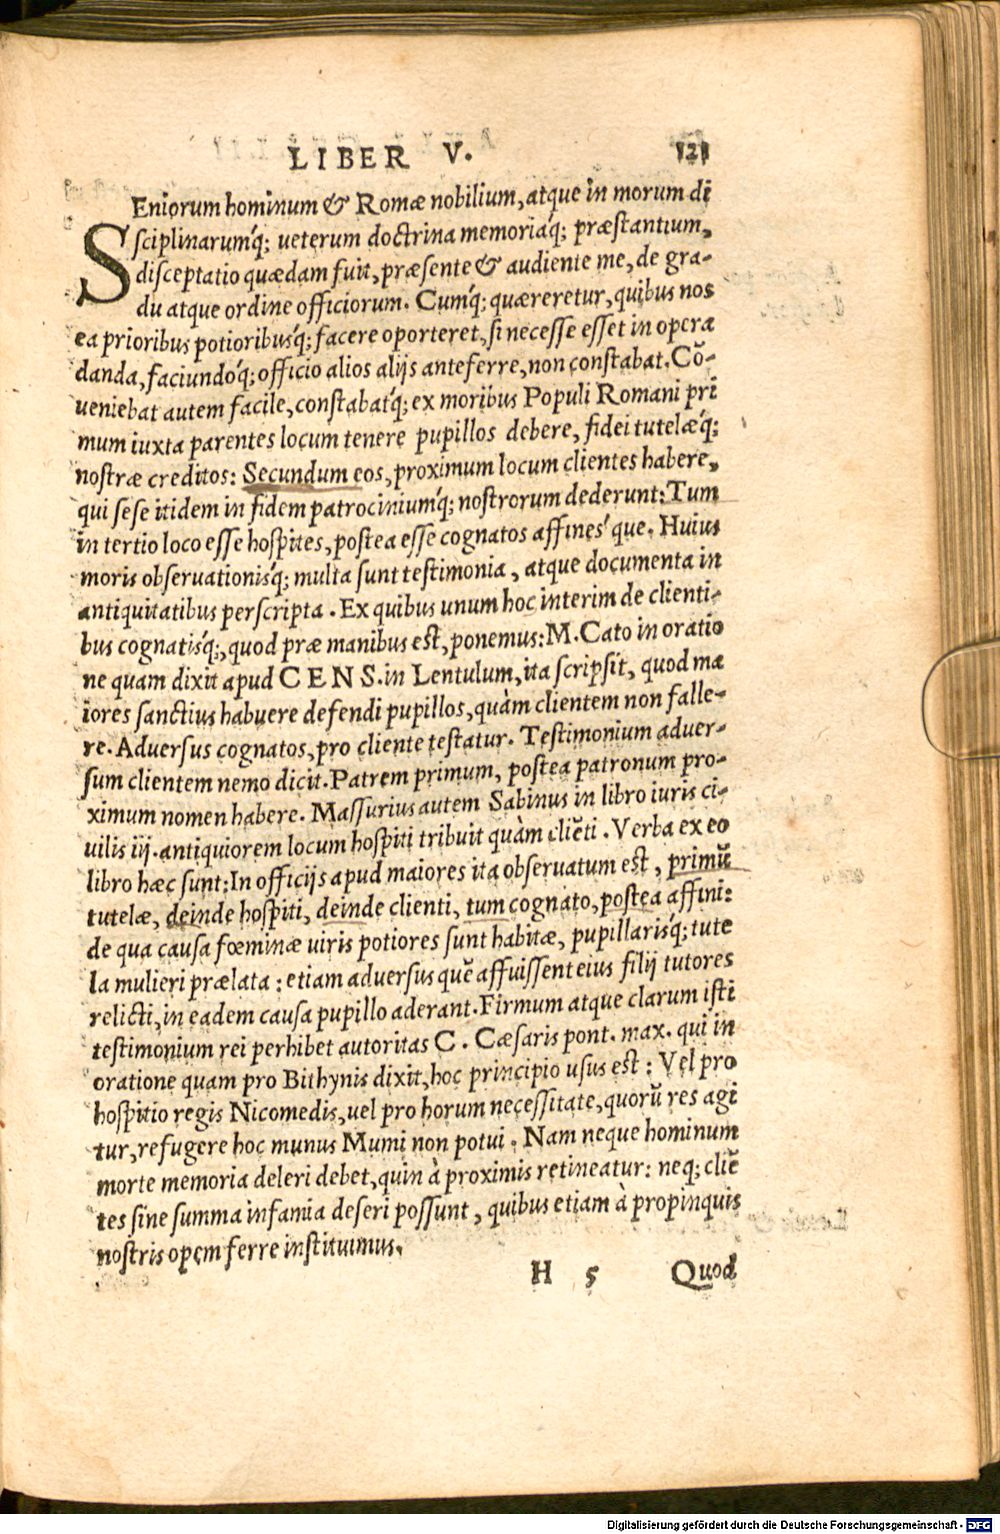 LIBER V. 121
SEniorum hominum & Romæ nobilium, atque in morum di
sciplinarumq́; ueterum doctrina memoriaq́; præstantium,
disceptatio quædam fuit, præsente & audiente me, de gra-
du atque ordine officiorum. Cumq́; quæreretur, quibus nos
ea prioribus potioribusq́; facere oporteret, si necesse esset in opera
danda, faciundoq́; officio alios alijs anteferre, non constabat. Cō-
ueniebat autem facile, constabatq́; ex moribus Populi Romani pri
mum iuxta parentes locum tenere pupillos debere, fidei tutelæq́;
nostræ creditos: Secundum eos, proximum locum clientes habere,
qui sese itidem in fidem patrociniumq́; nostrorum dederunt: Tum
in tertio loco esse hospites, postea esse cognatos affines'que. Huius
moris obseruationisq́; multa sunt testimonia, atque documenta in
antiquitatibus perscripta. Ex quibus unum hoc interim de clienti-
bus cognatisq́;, quod præ manibus est, ponemus: M. Cato in oratio
ne quam dixit apud CENS. in Lentulum, ita scripsit, quod ma
iores sanctius habuere defendi pupillos, quàm clientem non falle-
re. Aduersus cognatos, pro cliente testatur. Testimonium aduer-
sum clientem nemo dicit. Patrem primum, postea patronum pro-
ximum nomen habere. Massurius autem Sabinus in libro iuris ci-
uilis iij. antiquiorem locum hospiti tribuit quàm cliēti. Verba ex eo
libro hæc sunt: In officijs apud maiores ita obseruatum est, primū
tutelæ, deinde hospiti, deinde clienti, tum cognato, postea affini:
de qua causa fœminæ uiris potiores sunt habitæ, pupillarisq́; tute
la mulieri prælata: etiam aduersus quē affuissent eius filij tutores
relicti, in eadem causa pupillo aderant. Firmum atque clarum isti
testimonium rei perhibet autoritas C. Cæsaris pont. max. qui in
oratione quam pro Bithynis dixit, hoc principio usus est: Vel pro
hospitio regis Nicomedis, uel pro horum necessitate, quorū res agi
tur, refugere hoc munus Mumi non potui. Nam neque hominum
morte memoria deleri debet, quin à proximis retineatur: neq; cliē
tes sine summa infamia deseri possunt, quibus etiam à propinquis
nostris opem ferre instituimus.
H 5 Quod
Digitalisierung gefördert durch die Deutsche Forschungsgemeinschaft - DFG